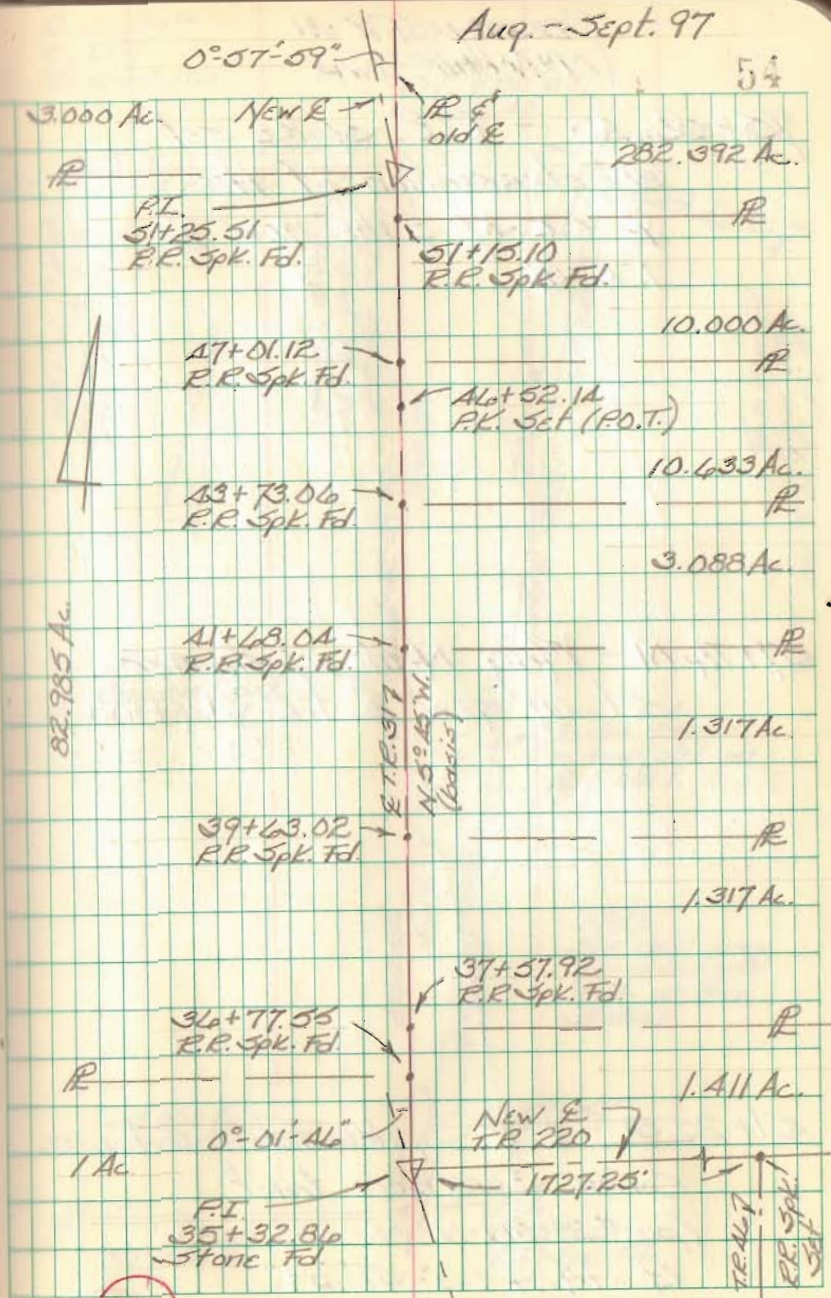 Aug. - Sept. 97
54
0°-57'-59"
3.000 Ac.
New ℄
PL &
old ℄
282.392 Ac.
PL
P.I.
51+25.51
R.R. Spk. Fd.
PL
51+15.10
R.R. Spk. Fd.
10.000 Ac.
47+01.12
R.R. Spk. Fd.
PL
46+52.14
P.K. Set (P.O.T.)
10.633 Ac.
43+73.06
R.R. Spk. Fd.
PL
3.088 Ac.
82.985 Ac.
41+68.04
R.R. Spk. Fd.
PL
℄ T.R. 317
N. 5° 45' W.
(basis)
1.317 Ac.
39+63.02
R.R. Spk. Fd.
PL
1.317 Ac.
37+57.92
R.R. Spk. Fd.
36+77.55
R.R. Spk. Fd.
PL
PL
1.411 Ac.
0°-01'-46"
New ℄
T.R. 220
1 Ac
1727.25'
P.I.
35+32.86
Stone Fd.
T.R. 467
R.R. Spk.
Set